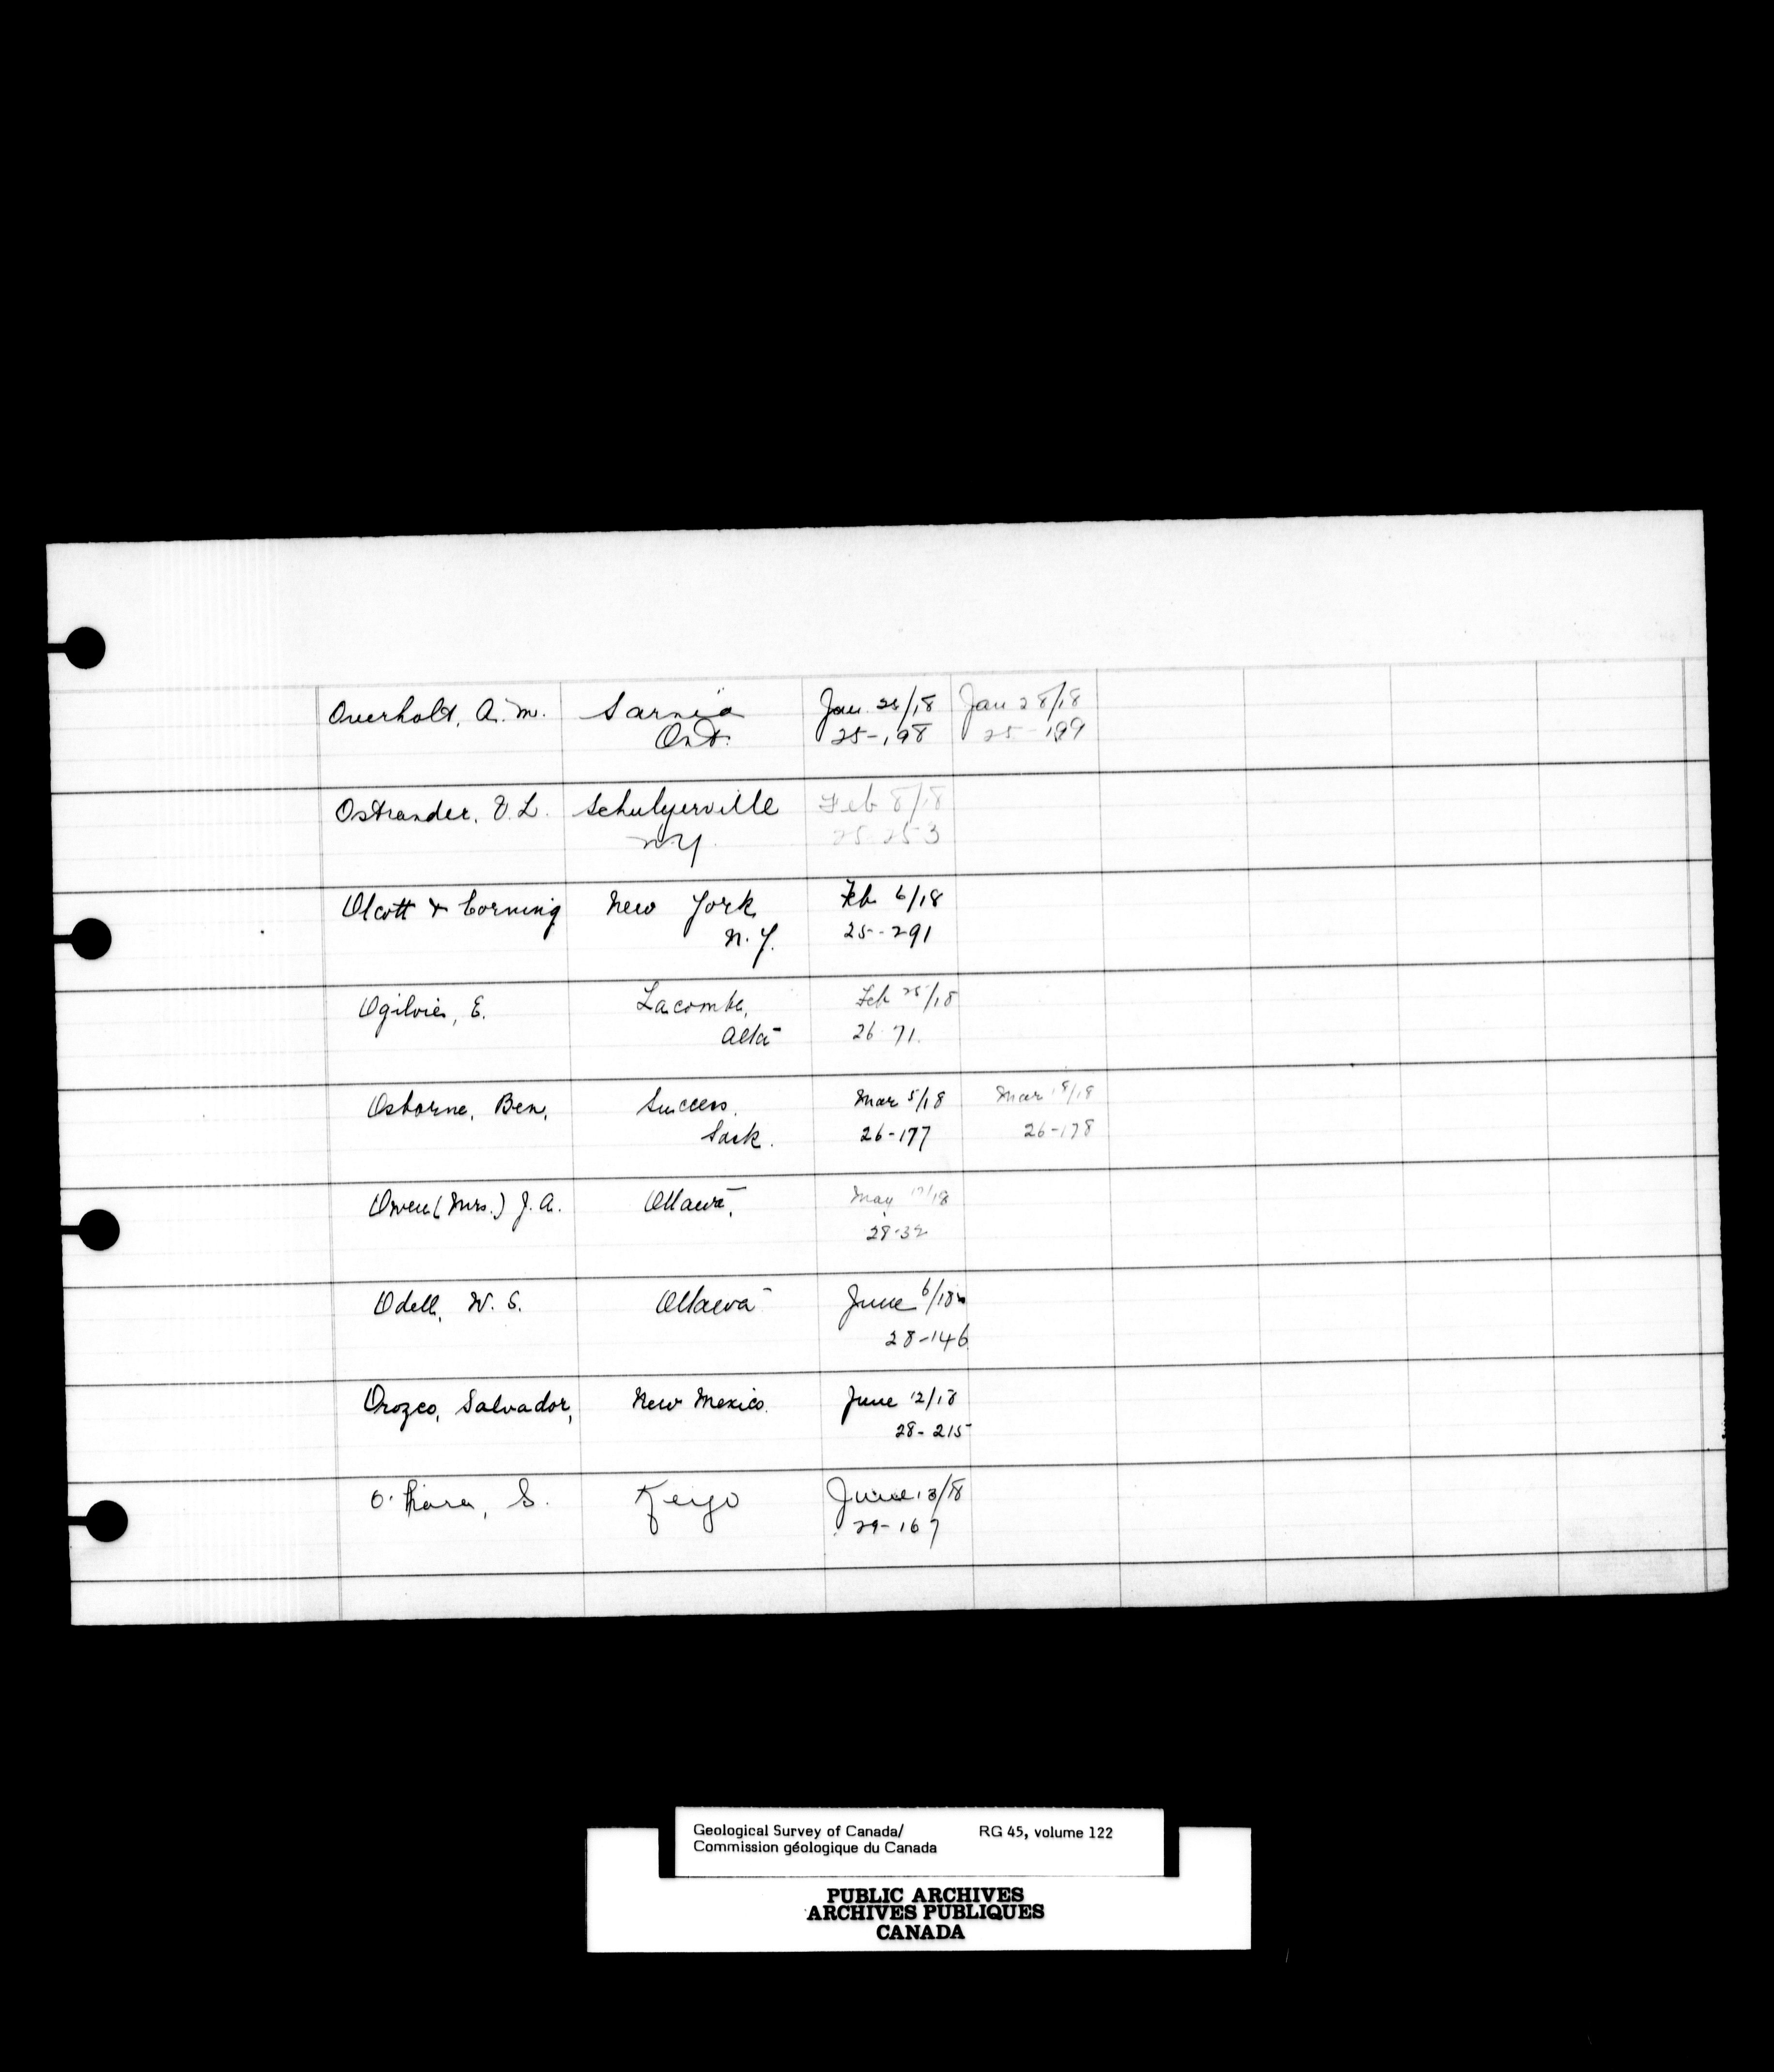 Overholt, A. M. Sarnia Jan 25/18 Jan 28/18
Ont. 25-198 25-199
Ostrander, V. L. Schulyerville Feb 8/18
N Y. 25-253
Olcott & Corning New York Feb 6/18
N. Y. 25-291
Ogilvie, E. Lacombe, Feb 25/18
Alta 26-71.
Osborne, Ben, Success. Mar 5/18 Mar 18/18
Sask. 26-177 26-178
Owen (Mrs.) J. A. Ottawa, May /18
28-32
Odell, W. S. Ottawa June 6/18
28-146
Orozco, Salvador, New Mexico. June 12/18
28-215
O'Hara, S. June 13/18
29-167
Geological Survey of Canada/ RG 45, volume 122
Commission géologique du Canada
PUBLIC ARCHIVES
ARCHIVES PUBLIQUES
CANADA